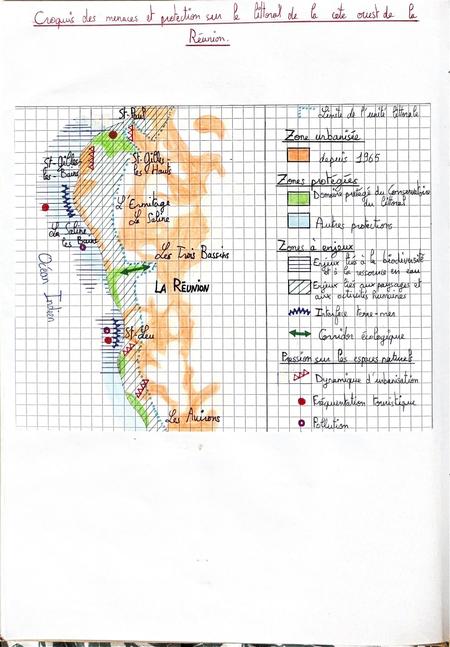 Croquis des menaces et protection sur le littoral de la côte ouest de la
Réunion.
St-Paul
St-Gilles-
les-Bains
St-Gilles-
les-Hauts
L'Ermitage
La Saline
La Saline
les Bains
Océan Indien
Les Trois Bassins
LA RÉUNION
St-Leu
Les Avirons
Limite de l'unité littorale
Zone urbanisée
depuis 1965
Zones protégées
Domaine protégé du Conservatoire
du littoral
Autres protections
Zones à enjeux
Enjeux liés à la biodiversité
et à la ressource en eau
Enjeux liés aux paysages et
aux activités humaines
Interface terre-mer
Corridor écologique
Pression sur les espaces naturels
Dynamique d'urbanisation
Fréquentation touristique
Pollution